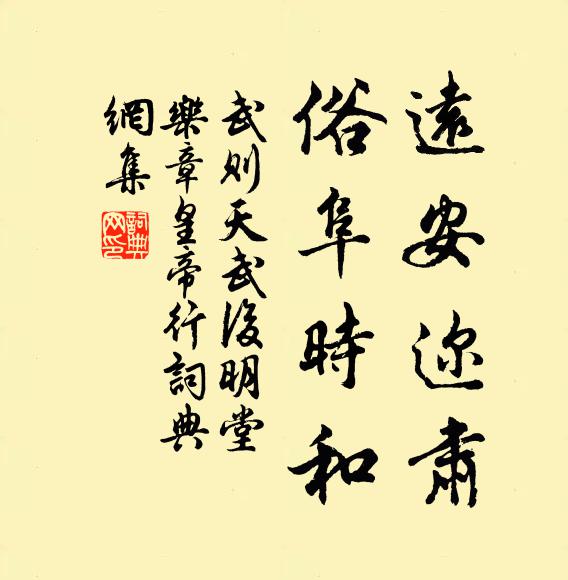 遠安迩肅
俗阜時和
武则天武後明堂
樂章皇帝行詞典
網集
詞典网印